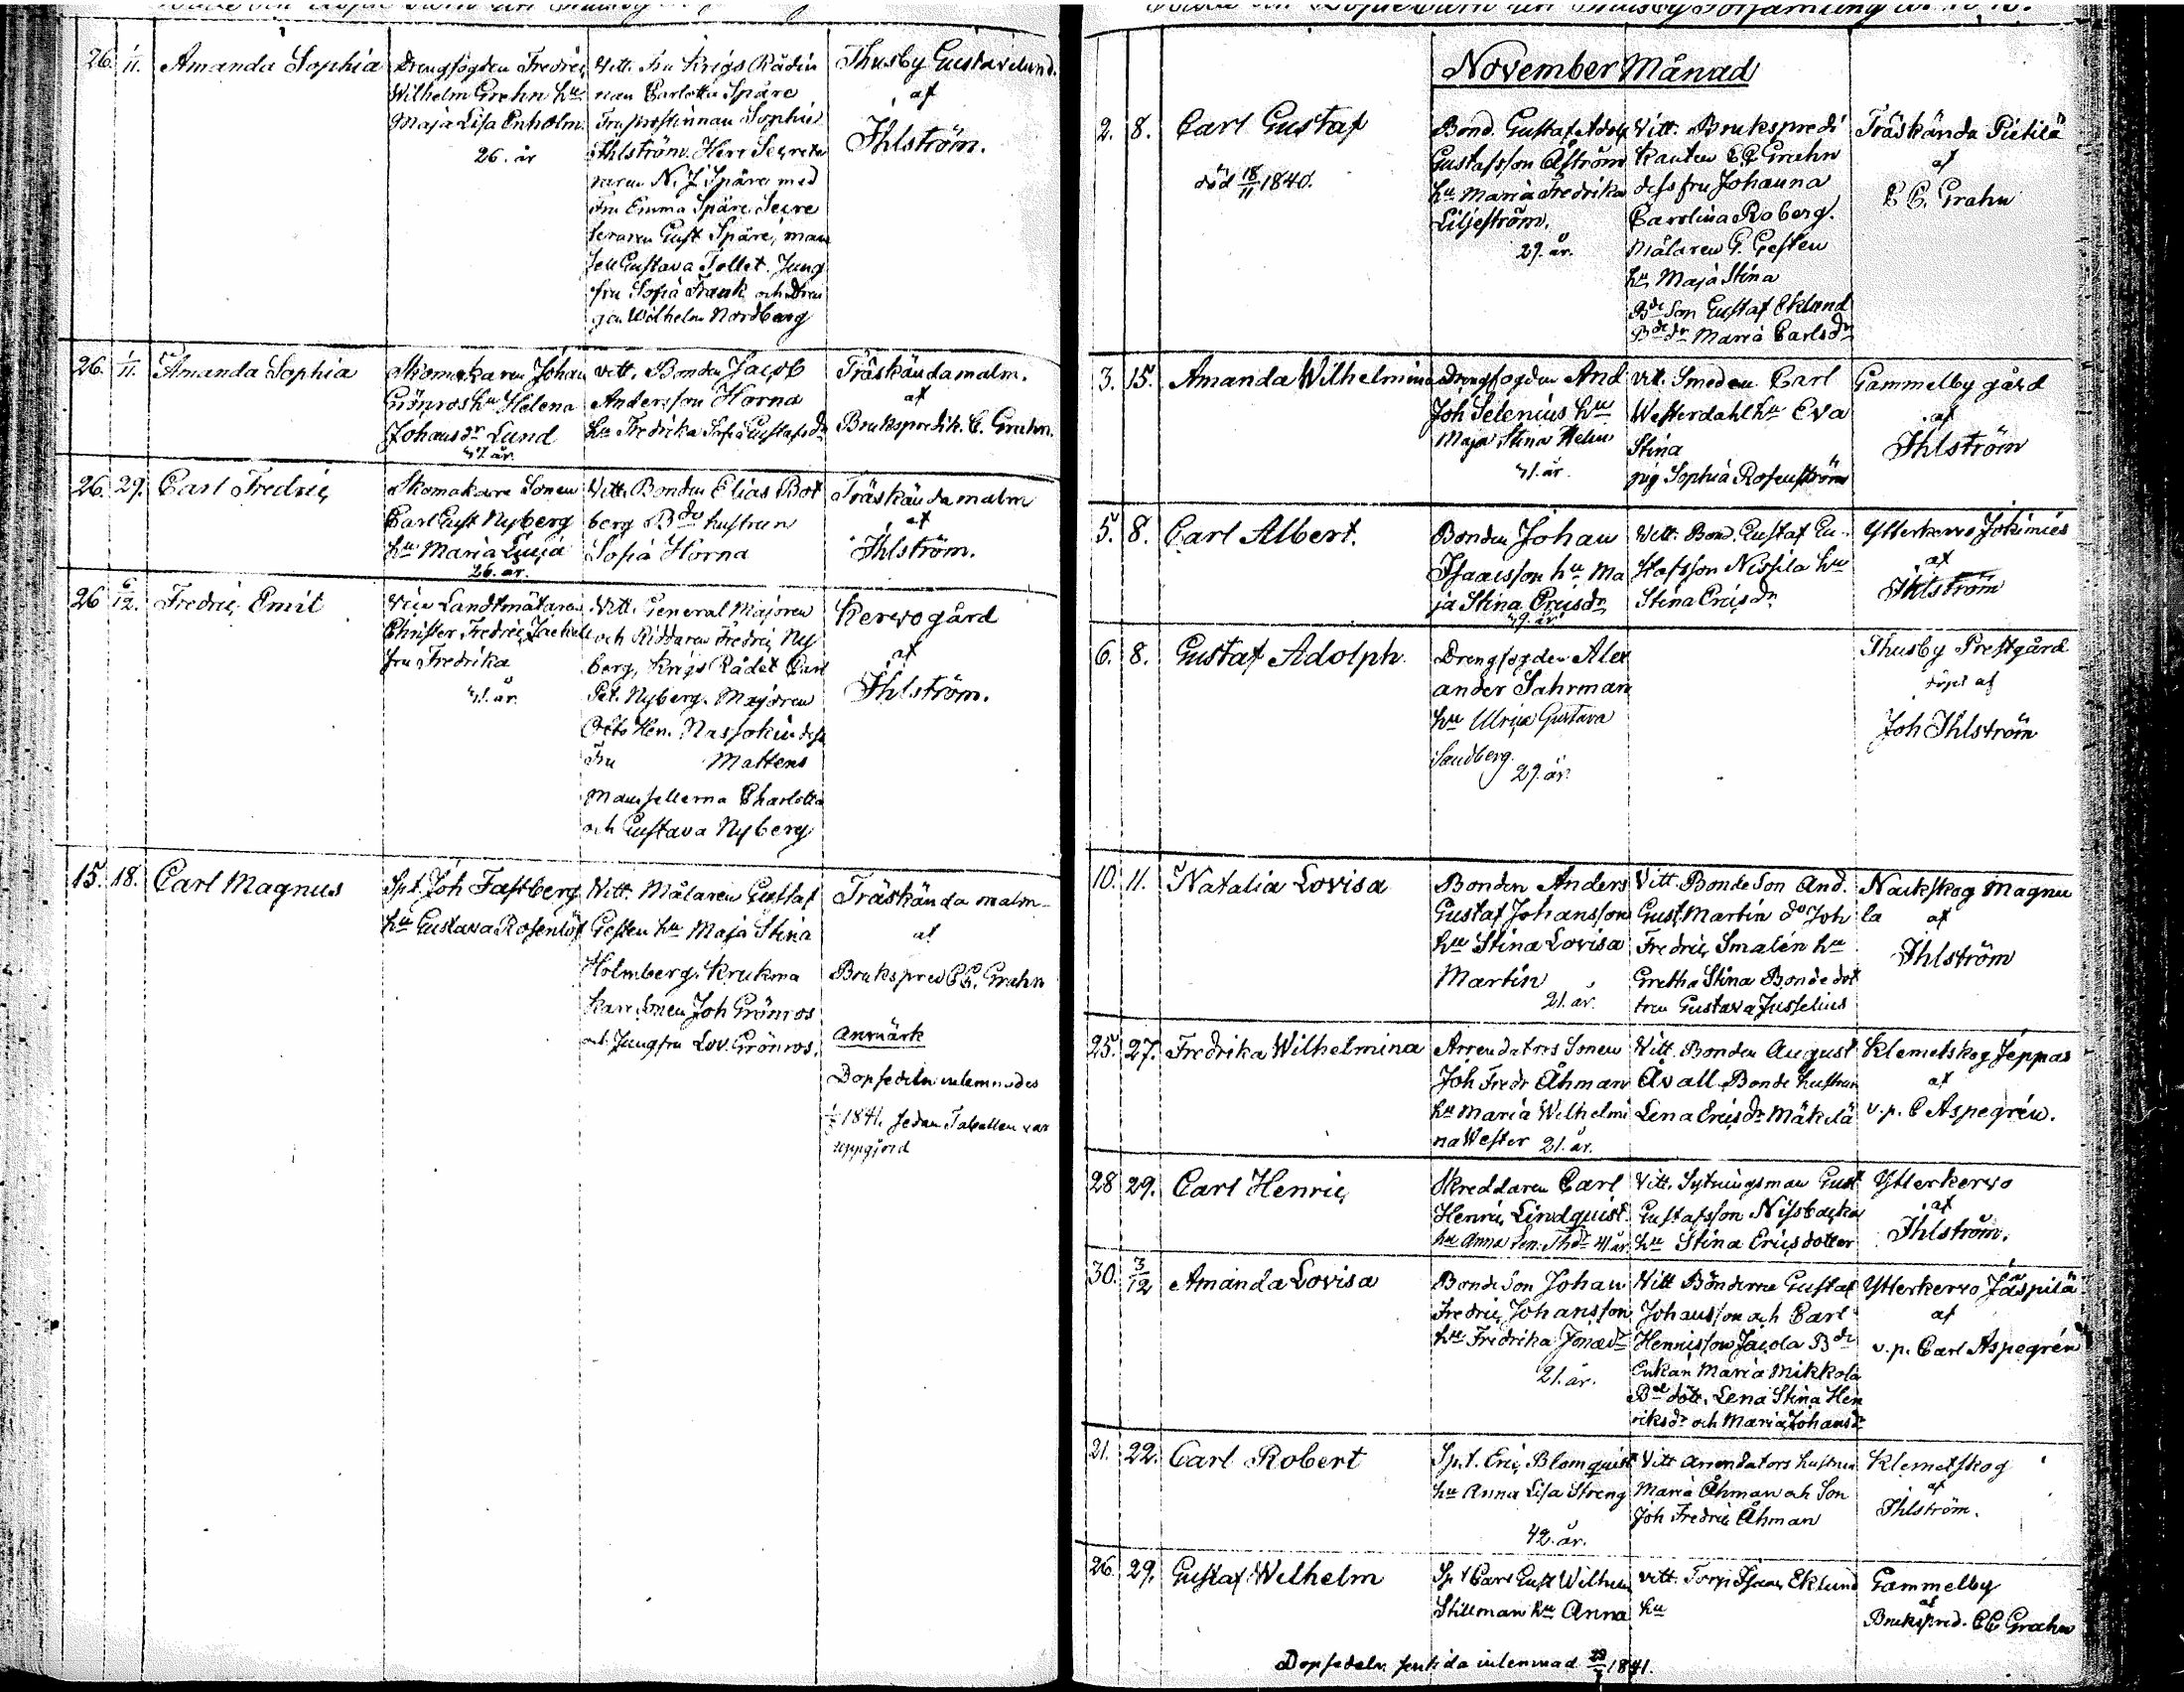 26. 1/11. Amanda Sophia
Drengfogden Fredric
Wilhelm Grehn hu
Maja Lisa Enholm.
26. år
Vitt. Fru Krigs Rådin
nan Carlotta Spåre
Fru Prostinnan Sophie
Ihlström. Herr Secrete
raren N. J Spåre med
fru Emma Spåre. Secre
teraren Gust Spåre, mam
sell Gustava Tollet. Jung
fru Sofia Frank och Dren
gen Wilhelm Nordberg
Thusby Gustavelund.
af
Ihlström.
26. 1/11. Amanda Sophia
Skomakaren Johan
Grönros hu Helena
Johansdr Lund
Vitt. Bonden Jacob
Andersson Horna
hu Fredrika Sofia Gustafsdr
Träskändamalm.
af
Brukspredik. C. Grahn.
26. 29. Carl Fredric
Skomakare Sonen
Carl Gust Nyberg
hu Maria
26. år.
Vitt. Bonden Elias Bot
berg Bde hustrun
Sofia Horna
Träskändamalm
af
Ihlström.
26 6/12. Fredric Emil
Vice Landtmätaren
Christer Fredric
fru Fredrika
Vitt. General Majoren
och Riddaren Fredric Ny
berg, Krigs Rådet Carl
Pet. Nyberg. Majoren
Otto Hen. Nassokin dess
Fru Mattens
Mamsellerna Charlotta
och Gustava Nyberg
Kerwo gård
af
Ihlström.
15. 18. Carl Magnus
Spt. Joh Fastberg
hu Gustava Rosenlöf
Vitt. Målaren Gustaf
Gesten hu Maja Stina
Holmberg. Krukma
kare Sonen Joh Grönros
och Jungfru Lov. Grönros.
Träskända malm
af
Brukspred C C. Grahn
Anmärk
Dopsedeln inlemnades
1841. sedan Tabellen var
uppgjord
November Månad
2. 8. Carl Gustaf
död 18/11 1840.
Bond. Gustaf Adolf
Gustafsson Åström
hu Maria Fredrika
Liljeström.
29. år.
Vitt. Brukspredi
kanten C C. Grahn
dess fru Johanna
Carolina Roberg.
Målaren G Gesten
hu Maja Stina
Bde Son Gustaf Eklund
Bde dr Maria Carlsdr
Träskända Pietilä
af
C C. Grahn
3. 15. Amanda Wilhelmina
Drengfogden And
Joh Selenius hu
Maja Stina Helin
Vitt. Smeden Carl
Westerdahl hu Eva
Stina
pig Sophia Rosenström
Gammelby gård
af
Ihlström
5. 8. Carl Albert.
Bonden Johan
Isaacsson hu Ma
ja Stina Ericsdr
Vitt. Bond. Gustaf Gu-
stafsson Nissila hu
Stina Ericsdr
Ytterkervo Jokimies
af
Ihlström
6. 8. Gustaf Adolph.
Drengfogden Alex
ander Sahrman
hu Ulrica Gustava
Sandberg.
29. år.
Thusby Prestgård
döpt af
Joh Ihlström
10. 11. Natalia Lovisa
Bonden Anders
Gustaf Johansson
hu Stina Lovisa
Martin
21. år.
Vitt. Bonde Son And.
Gust. Martin do Joh
Fredric Smalén hu
Gretha Stina Bondedot
tren Gustava Jusselius
Nackskog Magnu
la af
Ihlström
25. 27. Fredrika Wilhelmina
Arrendators Sonen
Joh Fredr Åhman
hu Maria Wilhelmi
na Wester 21. år.
Vitt. Bonden August
Åvall. Bonde hustrun
Lena Ericsdr Mäkelä
Klemetskog Jeppas
af
v. p. C Aspegrén.
28 29. Carl Henric
Skreddaren Carl
Henric Lindquist
hu Anna Len. Thdr 41 år
Vitt. Sytningsman Gust
Gustafsson Nissbacka
hu Stina Ericsdotter
Ytterkervo
af
Ihlström.
30. 3/12 Amanda Lovisa
BondeSon Johan
Fredric Johansson
hu Fredrika Jonaedr
21. år.
Vitt Bönderne Gustaf
Johansson och Carl
Henricsson Jacola Bde
Enkan Maria Mikkola
Bde dött. Lena Stina Hen
riksdr och Maria Johansdr
Ytterkervo Jäspilä
af
v. p. Carl Aspegrén
21. 22. Carl Robert
Sp.t. Eric Blomquist
hu Anna Lisa Streng
42. år.
Vitt Arrendators hustrun
Maria Åhman och Son
Joh Fredric Åhman
Klemetskog
af
Ihlström.
26. 29. Gustaf Wilhelm
Spt Carl Gust Wilhelm
Stillman hu Anna
Vitt. Torp. Isaac Eklund
hu
Gammelby
af
Brukspred. C C Grahn
Dopsedeln inlemnad 1841.